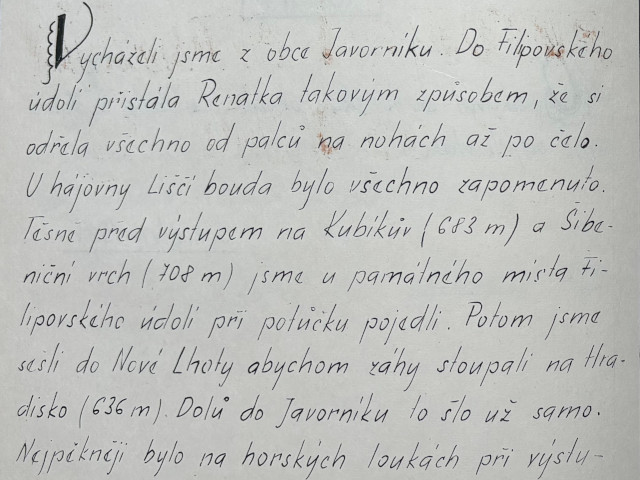 Vycházeli jsme z obce Javorníku. Do Filipovského
údolí přistála Renatka takovým způsobem, že si
odřela všechno od palců na nohách až po čelo.
U hájovny Liščí bouda bylo všechno zapomenuto.
Těsně před výstupem na Kubíkův (683 m) a Šibe-
niční vrch (708 m) jsme u památného místa Fi-
lipovského údolí při potůčku pojedli. Potom jsme
sešli do Nové Lhoty abychom záhy stoupali na Hra-
disko (636 m). Dolů do Javorníku to šlo už samo.
Nejpěkněji bylo na horských loukách při výstu-